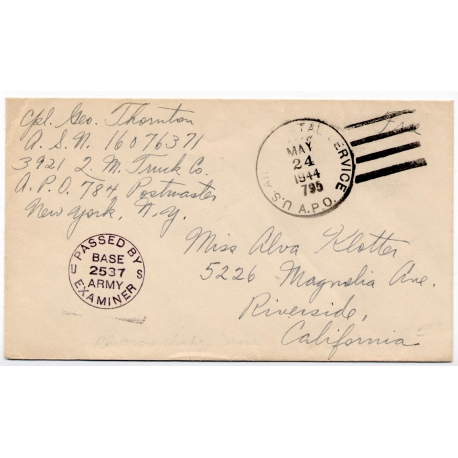 Cpl. Geo. Thornton
A.S.N. 16076371
3921 Q.M. Truck Co.
A.P.O. 784 Postmaster
New York, N.Y.
POSTAL SERVICE
MAY
24
1944
795
U.S. A.P.O.
Free
PASSED BY
U S
BASE
2537
ARMY
EXAMINER
Miss Alva Klotter
5226 Magnolia Ave.
Riverside,
California